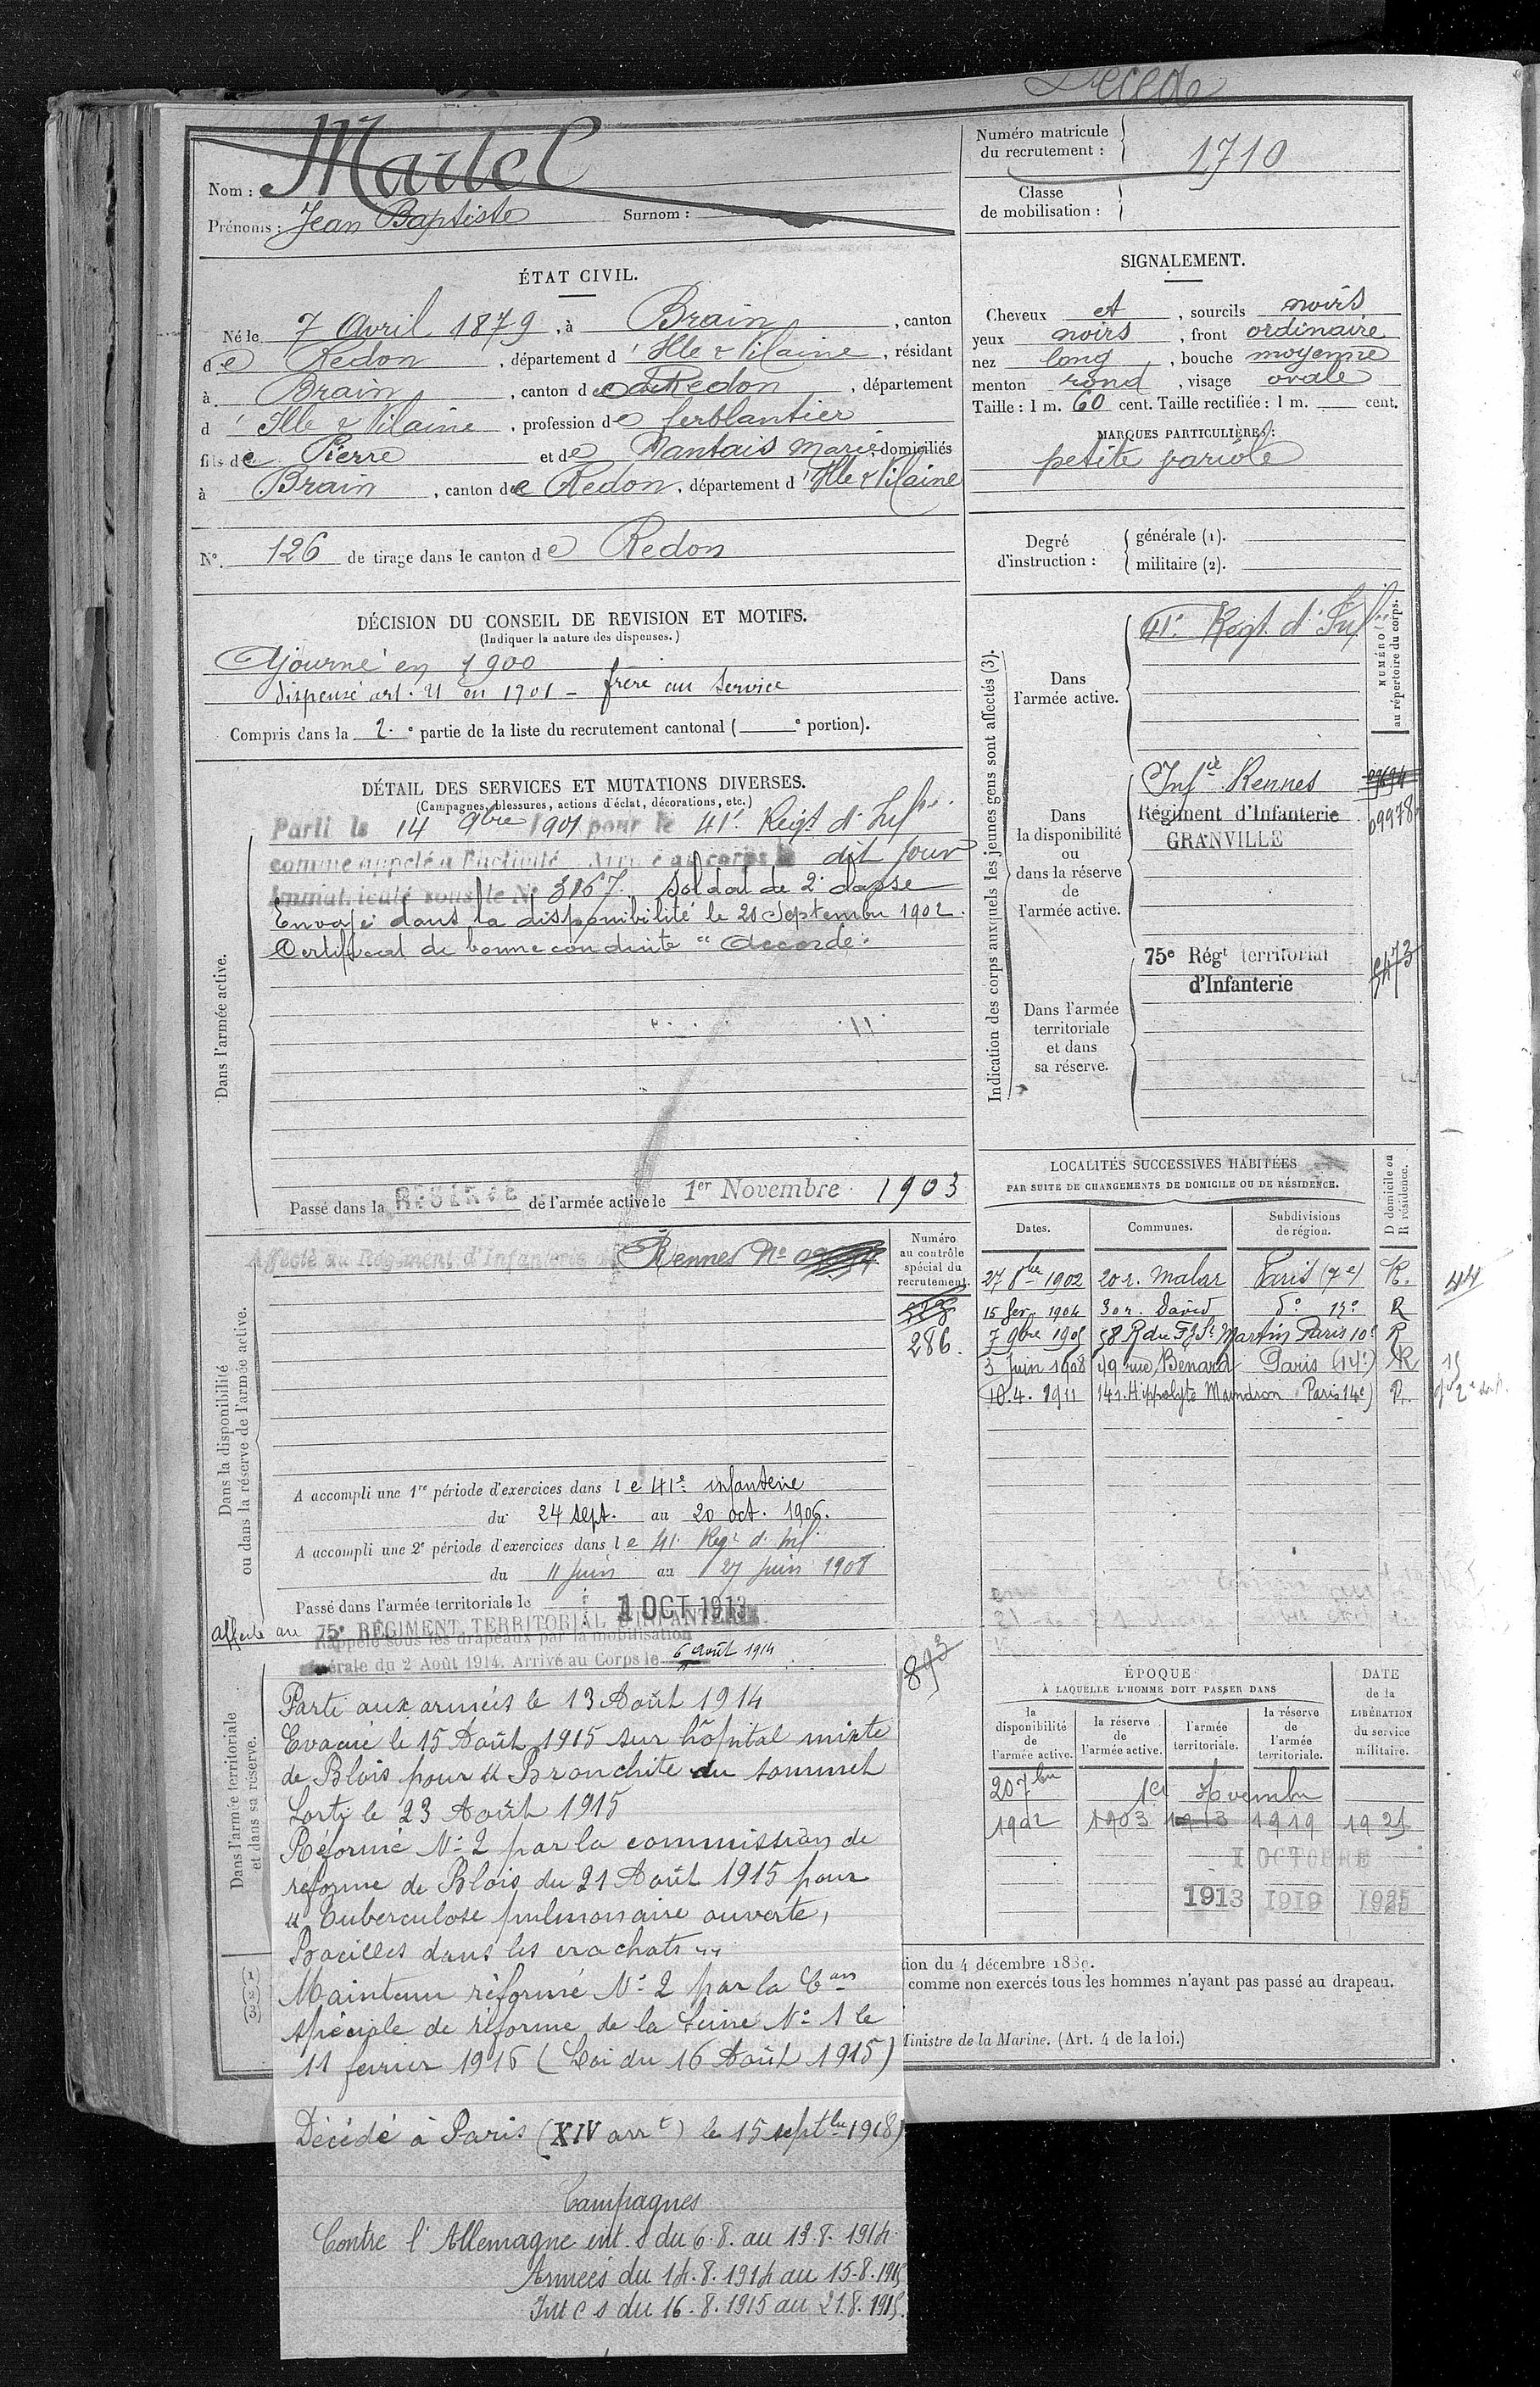 Décédé
Nom : Martel
Prénoms : Jean Baptiste Surnom :
Numéro matricule du recrutement : 1710
Classe de mobilisation :
ÉTAT CIVIL.
Né le 7 Avril 1879, à Brain, canton
de Redon, département d'Ille & Vilaine, résidant
à Brain, canton de Redon, département
d'Ille & Vilaine, profession de ferblantier
fils de Pierre et de Nantais Marie domiciliés
à Brain, canton de Redon, département d'Ille & Vilaine
N° 126 de tirage dans le canton de Redon
SIGNALEMENT.
Cheveux et, sourcils noirs
yeux noirs, front ordinaire
nez long, bouche moyenne
menton rond, visage ovale
Taille : 1 m. 60 cent. Taille rectifiée : 1 m. cent.
MARQUES PARTICULIÈRES :
petite variole
Degré d'instruction : générale (1).
militaire (2).
DÉCISION DU CONSEIL DE REVISION ET MOTIFS.
(Indiquer la nature des dispenses.)
Ajourné en 1900
dispensé art. 21 en 1901 - frère au service
Compris dans la 2.e partie de la liste du recrutement cantonal ( e portion).
DÉTAIL DES SERVICES ET MUTATIONS DIVERSES.
(Campagnes, blessures, actions d'éclat, décorations, etc.)
Dans l'armée active.
Parti le 14 9bre 1901 pour le 41e Régt d'Infie.
comme appelé à l'activité. Arrivé au corps le dit jour
Immatriculé sous le N° 3167. Soldat de 2e classe
Envoyé dans la disponibilité le 20 Septembre 1902.
Certificat de bonne conduite "Accordé".
Passé dans la RÉSERVE de l'armée active le 1er Novembre 1903
Indication des corps auxquels les jeunes gens sont affectés (3).
NUMÉRO au répertoire du corps.
Dans l'armée active.
41e Régt d'Inf
Dans la disponibilité ou dans la réserve de l'armée active.
Infie Rennes
Régiment d'Infanterie
GRANVILLE
09978
Dans l'armée territoriale et dans sa réserve.
75e Régt territorial
d'Infanterie
5473
LOCALITÉS SUCCESSIVES HABITÉES
PAR SUITE DE CHANGEMENTS DE DOMICILE OU DE RÉSIDENCE.
Dates. Communes. Subdivisions de région. D domicile ou R résidence.
27 8bre 1902 20 r. Malar Paris (7e) R.
15 fev. 1904 30 r. David do 15e R
7 9bre 1905 58 R du Fg St Martin Paris 10e R
3 Juin 1908 49 rue Bénard Paris (14e) R
10.4.1911 14 r. Hippolyte Maindron Paris 14e) R.
44
Dans la disponibilité ou dans la réserve de l'armée active.
Affecté au Régiment d'Infanterie de Rennes N°
Numéro au contrôle spécial du recrutement.
286.
A accompli une 1re période d'exercices dans le 41e infanterie
du 24 sept. au 20 oct. 1906.
A accompli une 2e période d'exercices dans le 41e Régt d'Inf.
du 11 juin au 27 juin 1908
Passé dans l'armée territoriale le 1 OCT 1913
affecté au 75e RÉGIMENT TERRITORIAL D'INFANTERIE.
Rappelé sous les drapeaux par la mobilisation
générale du 2 Août 1914. Arrivé au Corps le 6 août 1914
893
Dans l'armée territoriale et dans sa réserve.
Parti aux armées le 13 Août 1914
Evacué le 15 Août 1915 sur hôpital mixte
de Blois pour "Bronchite du sommet
Sorti le 23 Août 1915
Réformé N° 2 par la commission de
réforme de Blois du 21 Août 1915 pour
"Tuberculose pulmonaire ouverte,
Bacilles dans les crachats"
Maintenu réformé N° 2 par la Con
spéciale de réforme de la Seine N° 1 le
11 février 1916 (Loi du 16 Août 1915)
Décédé à Paris (XIV arrt) le 15 septbre 1918)
Campagnes
Contre l'Allemagne int. s du 6.8. au 13.8.1914.
Armées du 14.8.1914 au 15.8.1915
Int C s du 16.8.1915 au 21.8.1915.
ÉPOQUE
À LAQUELLE L'HOMME DOIT PASSER DANS
la disponibilité de l'armée active. la réserve de l'armée active. l'armée territoriale. la réserve de l'armée territoriale.
DATE de la LIBÉRATION du service militaire.
20 7bre 1er Novembre
1902 1903 1913 1919 1925
1 OCTOBRE
1913 1919 1925
(1)
(2)
(3)
tion du 4 décembre 1889.
comme non exercés tous les hommes n'ayant pas passé au drapeau.
Ministre de la Marine. (Art. 4 de la loi.)